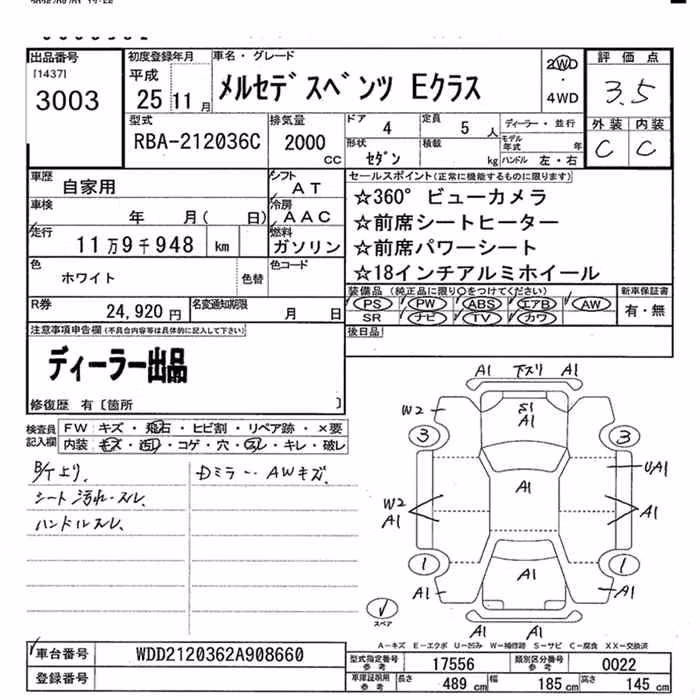 出品番号
[1437]
3003
初度登録年月
平成
25 11 月
車名・グレード
メルセデスベンツ Eクラス
2WD
・
4WD
評価点
3.5
外装 内装
C C
型式
RBA-212036C
排気量
2000
cc
ドア 4
定員 5 人
ディーラー・並行
形状
セダン
積載 kg
モデル年式 年
ハンドル 左・右
車歴
自家用
シフト
AT
車検
年 月( 日)
冷房
AAC
走行
11万9千948 km
燃料
ガソリン
色
ホワイト
色替
色コード
R券
24,920 円
名変通知期限
月 日
セールスポイント(正常に機能するものに限ります)
☆360° ビューカメラ
☆前席シートヒーター
☆前席パワーシート
☆18インチアルミホイール
装備品 (純正品に限り○をつけてください)
PS PW ABS エアB AW
SR ナビ TV カワ
新車保証書
有・無
後日品
注意事項申告欄(不具合内容等は具体的に記入して下さい)
ディーラー出品
修復歴 有〔箇所 〕
検査員
記入欄
FW キズ・飛石・ヒビ割・リペア跡・×要
内装 キズ・汚れ・コゲ・穴・スレ・キレ・破レ
シート汚れ・スレ、
ハンドルスレ、
Dミラー、AWキズ、
A1 下スリ A1
W2
A1
3 3
A1
UA1
W2
A1
A1
1 1
A1
A1
A1
A1 A1
スペア
A-キズ E-エクボ U-凹み W-補修跡 S-サビ C-腐食 XX-交換済
車台番号 WDD2120362A908660
登録番号
型式指定番号
参考
17556
類別区分番号
参考
0022
車庫証明用
参考
長さ 489 cm 幅 185 cm 高さ 145 cm